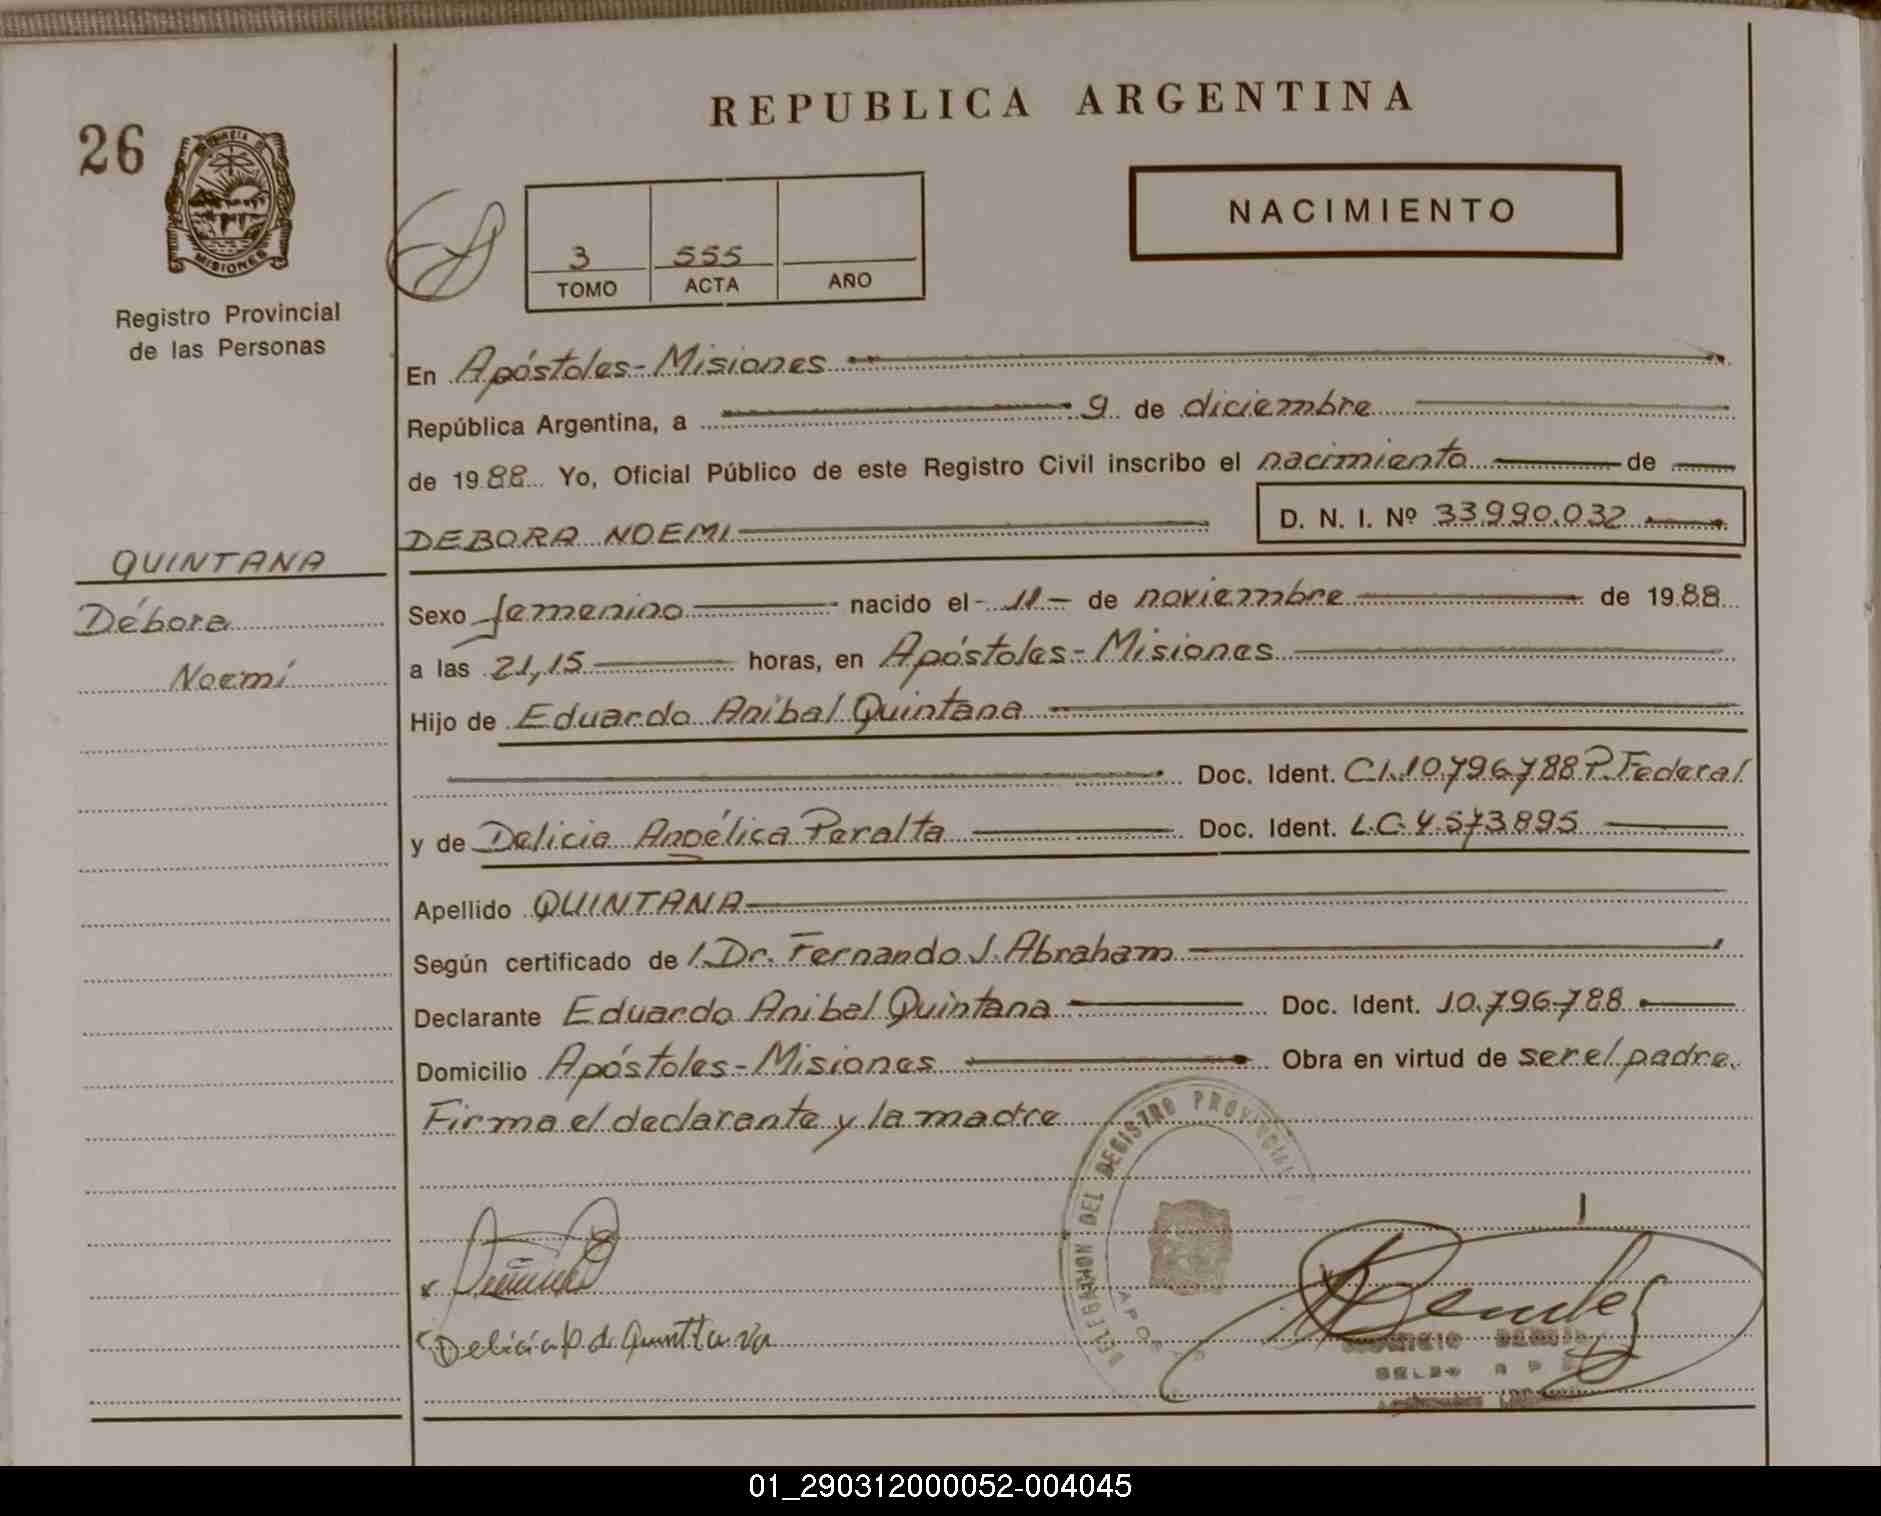 REPUBLICA ARGENTINA
26
PROVINCIA D
MISIONES
NACIMIENTO
3 555
TOMO ACTA AÑO
Registro Provincial
de las Personas
En Apóstoles - Misiones
República Argentina, a 9 de diciembre
de 1988 Yo, Oficial Público de este Registro Civil inscribo el nacimiento de
DEBORA NOEMI D. N. I. Nº 33.990.032
QUINTANA
Débora
Noemí
Sexo femenino nacido el - 11 - de noviembre de 1988
a las 21,15 horas, en Apóstoles - Misiones
Hijo de Eduardo Anibal Quintana
Doc. Ident. C.I. 10.796.788 P. Federal
y de Delicia Angélica Peralta Doc. Ident. L.C. 4.573.895
Apellido QUINTANA
Según certificado de /. Dr. Fernando J. Abraham
Declarante Eduardo Anibal Quintana Doc. Ident. 10.796.788
Domicilio Apóstoles - Misiones Obra en virtud de ser el padre.
Firma el declarante y la madre
DELEGACION DEL REGISTRO PROVINCIAL
Delicia P. de Quintana
01_290312000052-004045